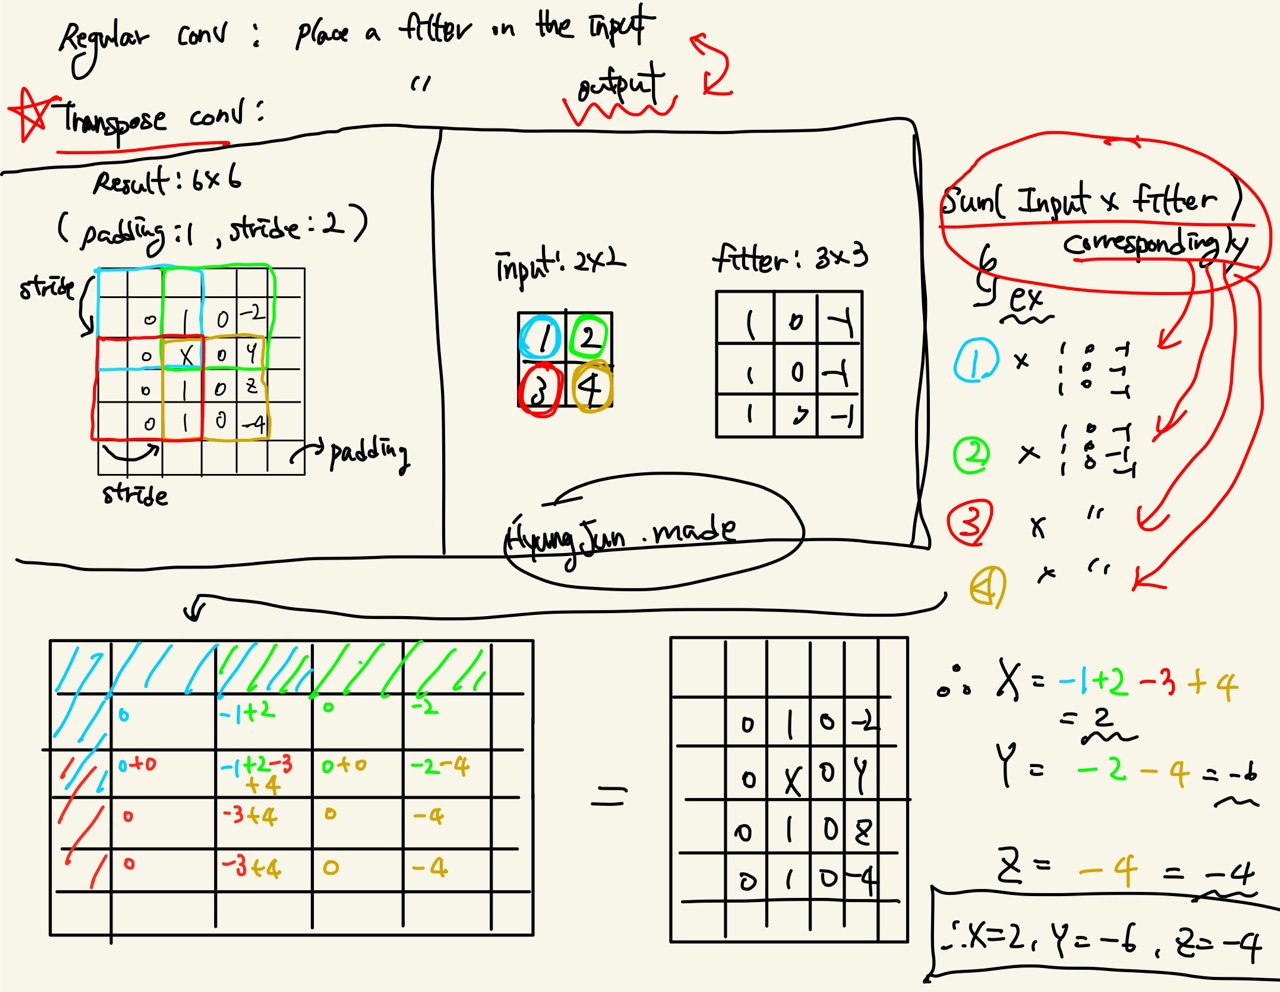 Regular conv : place a filter on the input
Transpose conv : " output
Result : 6x6
(padding :1 , stride : 2)
stride
0 1 0 -2
0 X 0 Y
0 1 0 Z
0 1 0 -4
stride
padding
input : 2x2
1 2
3 4
filter : 3x3
1 0 -1
1 0 -1
1 0 -1
HyungJun .made
Sum( Input x filter )
correspondingly
ex
1 x 1 0 -1
1 0 -1
1 0 -1
2 x 1 0 -1
1 0 -1
1 0 -1
3 x "
4 x "
0 -1+2 0 -2
0+0 -1+2-3+4 0+0 -2-4
0 -3+4 0 -4
0 -3+4 0 -4
=
0 1 0 -2
0 X 0 Y
0 1 0 Z
0 1 0 -4
∴ X = -1+2-3+4
= 2
Y = -2-4 = -6
Z = -4 = -4
∴X=2, Y=-6, Z=-4